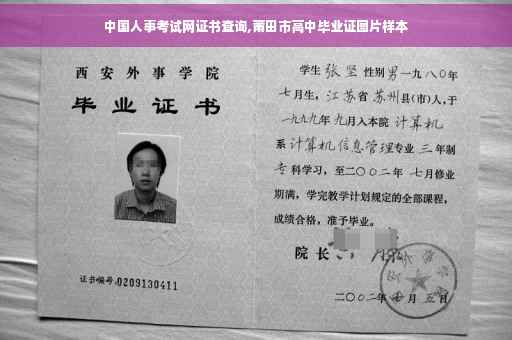 中国人事考试网证书查询,莆田市高中毕业证图片样本
西安外事学院
毕业证书
证书编号:0209130411
学生 张坚 性别 男 一九八〇年
七月生,江苏省 苏州 县(市)人,于
一九九九年 九月入本院 计算机
系 计算机信息管理 专业 三 年制
专科学习,至二〇〇二年 七月修业
期满,学完教学计划规定的全部课程,
成绩合格,准予毕业。
院长
二〇〇二年 七月 五日